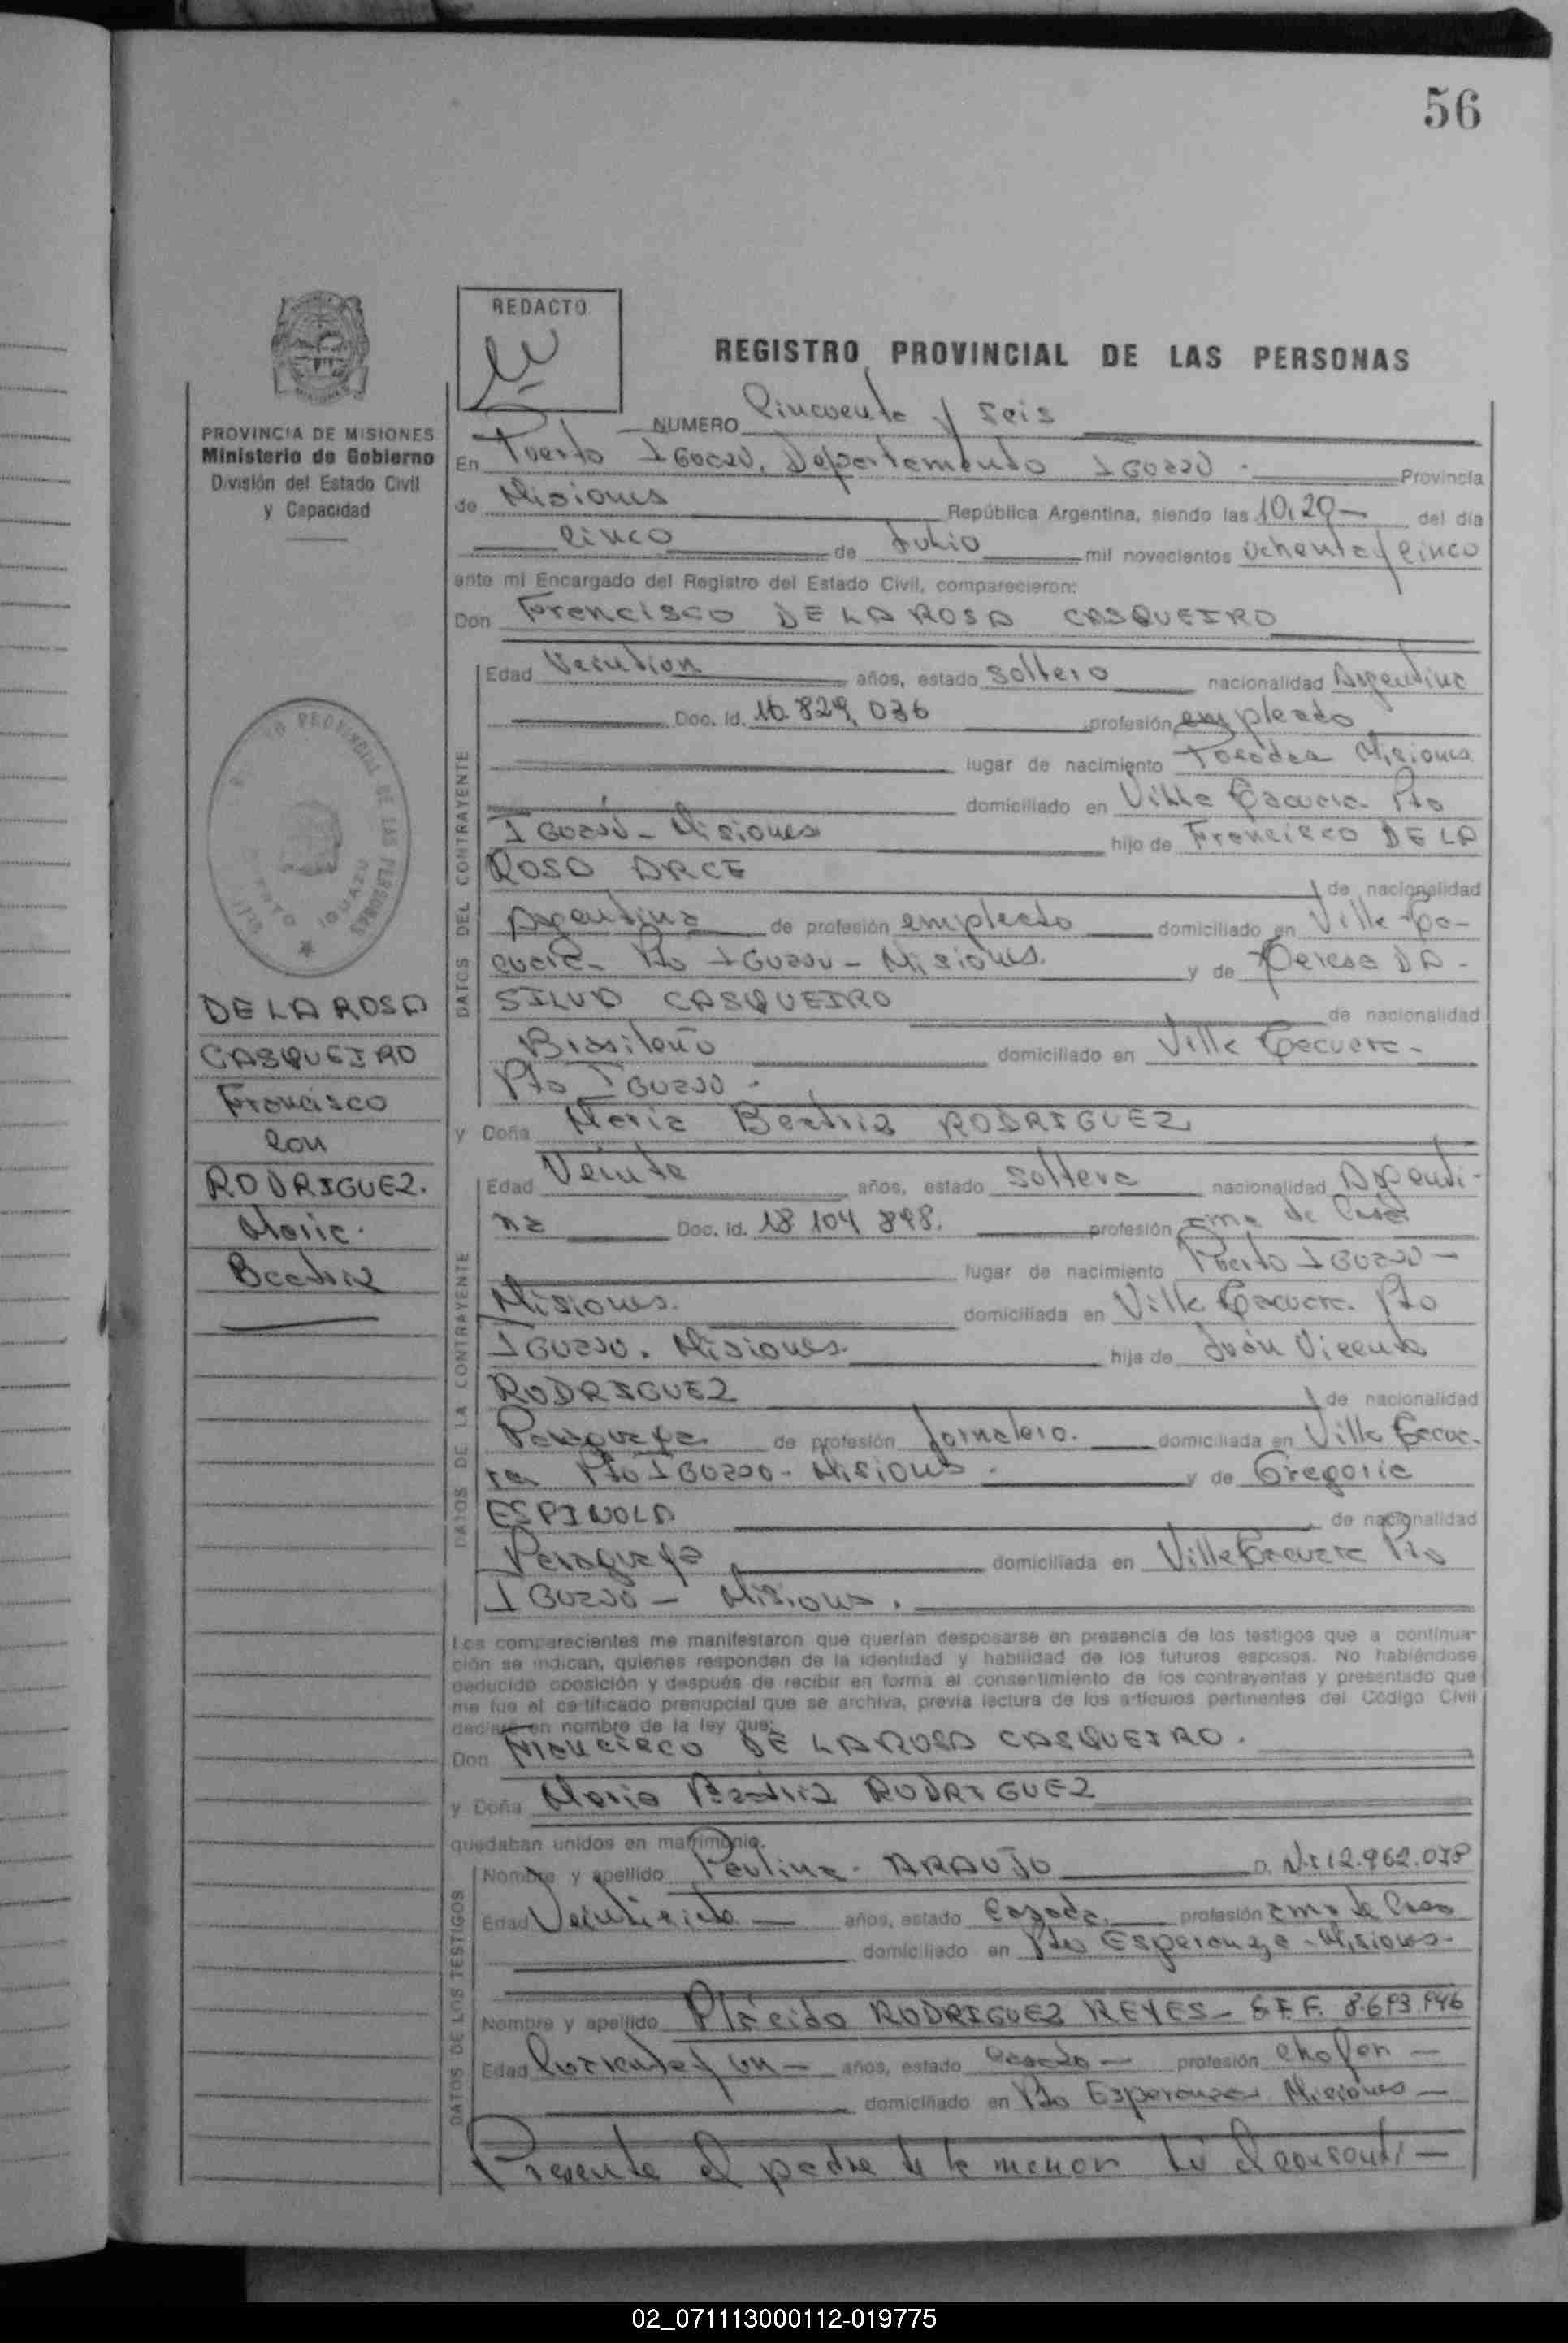 56
REDACTO
REGISTRO PROVINCIAL DE LAS PERSONAS
PROVINCIA DE MISIONES
Ministerio de Gobierno
División del Estado Civil
y Capacidad
NUMERO Cincuenta y seis
En Puerto IGUAZU, Departamento IGUAZU. Provincia
de Misiones República Argentina, siendo las 10,20 del día
cinco de Julio mil novecientos ochenta y cinco
ante mi Encargado del Registro del Estado Civil, comparecieron:
Don Francisco DE LA ROSA CASQUEIRO
DATOS DEL CONTRAYENTE
Edad años, estado soltero nacionalidad Argentina
Doc. Id. 16.829.036 profesión empleado
lugar de nacimiento Misiones
domiciliado en Villa Tacuara. Pto
IGUAZU - Misiones hijo de Francisco DE LA
ROSA ARCE de nacionalidad
Argentina de profesión empleado domiciliado en Villa Ta-
cuara - Pto IGUAZU - Misiones. y de Teresa DA -
SILVA CASQUEIRO de nacionalidad
Brasileña domiciliado en Villa Tacuara -
Pto IGUAZU.
y Doña Maria Beatriz RODRIGUEZ
DATOS DE LA CONTRAYENTE
Edad Veinte años, estado soltera nacionalidad Argenti-
na Doc. Id. 18 104 898. profesión ama de casa
lugar de nacimiento Puerto IGUAZU -
Misiones. domiciliada en Villa Tacuara. Pto
IGUAZU. Misiones. hija de Juán Vicente
RODRIGUEZ de nacionalidad
Paraguaya de profesión Jornalero. domiciliada en Villa Tacua-
ra Pto IGUAZU - Misiones. y de Gregoria
ESPINOLA de nacionalidad
Paraguaya domiciliada en Villa Tacuara Pto
IGUAZU - Misiones.
Los comparecientes me manifestaron que querían desposarse en presencia de los testigos que a continua-
ción se indican, quienes responden de la identidad y habilidad de los futuros esposos. No habiéndose
deducido oposición y después de recibir en forma el consentimiento de los contrayentes y presentado que
me fue el certificado prenupcial que se archiva, previa lectura de los artículos pertinentes del Código Civil
declaré en nombre de la ley que:
Don Francisco DE LA ROSA CASQUEIRO.
y Doña Maria Beatriz RODRIGUEZ
quedaban unidos en matrimonio.
DATOS DE LOS TESTIGOS
Nombre y apellido Paulina ARAUJO D.N.I 12.962.078
Edad Veintisiete años, estado Casada. profesión ama de Casa
domiciliado en Pto Esperanza - Misiones.
Nombre y apellido Plácido RODRIGUEZ REYES
Edad Cuarenta y un años, estado casado profesión chofer
domiciliado en Pto Esperanza Misiones
Presente el padre de la menor dá el consenti-
DE LA ROSA
CASQUEIRO
Francisco
con
RODRIGUEZ.
Maria
Beatriz
02_071113000112-019775